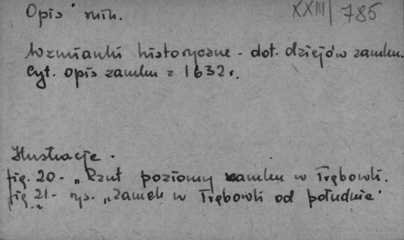 Opis min. XXIII/785
Wzmianki historyczne - dot. dziejów zamku.
Cyt. opis zamku z 1632 r.
Ilustracje.
fig. 20 - "Rzut poziomy zamku w Trębowli.
fig. 21 - rys. "Zamek w Trębowli od południa"